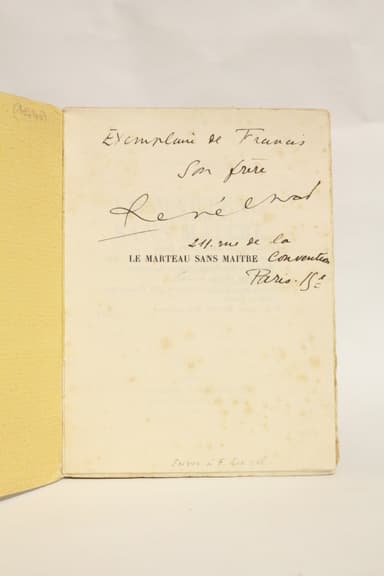 Exemplaire de Francis
son frère
René Char
211. rue de la
LE MARTEAU SANS MAITRE
Convention
Paris. 15e
Envoi à F.